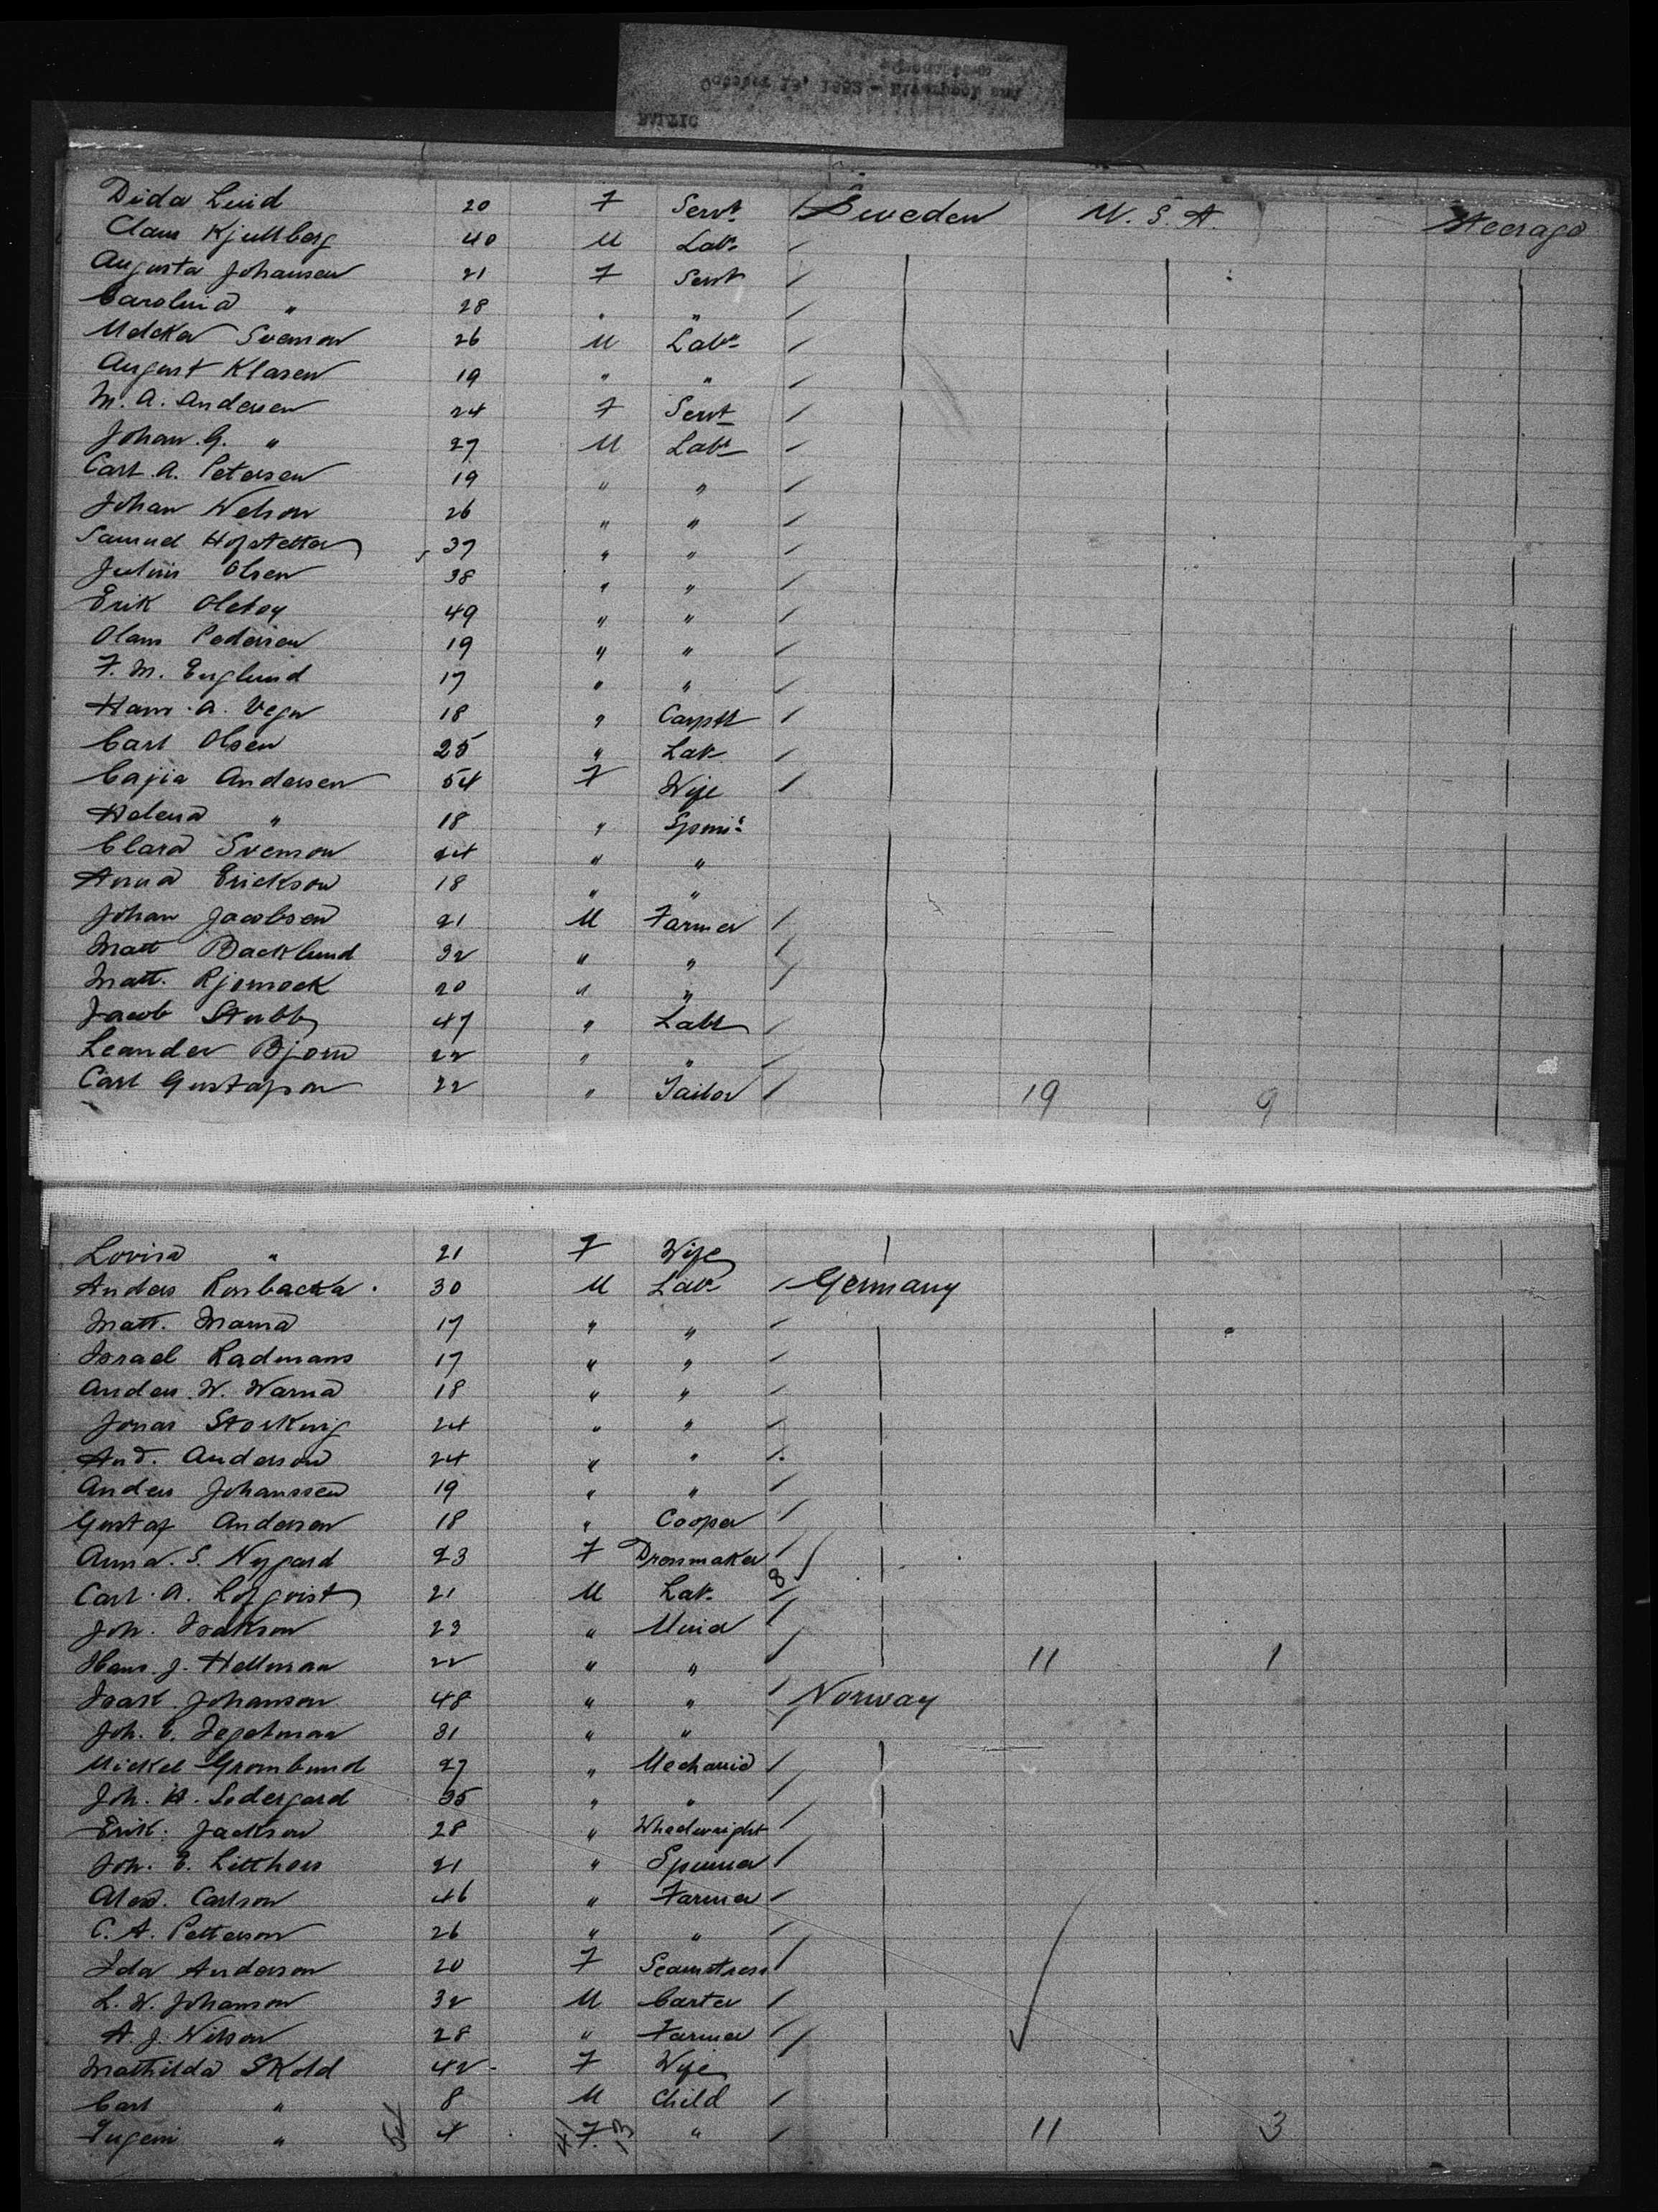 BALTIC
October 18, 1882 - Liverpool and
Dida Lind 20 F Servt. Sweden U. S. A. Steerage
Claus Kjellberg 40 M Labr.
Augusta Johansen 21 F Servt
Carolina " 28 " "
Svenson 26 M Labr.
August Klasen 19 " "
M. A. Andersen 24 F Servt
Johan G. " 27 M Labr
Carl A. Petersen 19 " "
Johan Nelson 26 " "
Samuel Hofstetter 37 " "
Julius Olsen 38 " "
Erik 49 " "
Olaus Pedersen 19 " "
F. M. Englund 17 " "
Hans A. 18 " Carptr
Carl Olsen 25 " Labr
Cajia Andersen 54 F Wife
Helena " 18 "
Clara Svenson 24 " "
Anna Erickson 18 " "
Johan Jacobsen 21 M Farmer
Matt Backlund 32 " "
Matt. 20 " "
Jacob Stubb 47 " Labr
Leander Bjorn 22 " "
Carl Gustafson 22 " Tailor 19 9
Lovisa " 21 F Wife
Anders 30 M Labr Germany
Matt. 17 " "
Israel Radmans 17 " "
Anders W. Warna 18 " "
Jonas 24 " "
And. Anderson 24 " "
Anders Johanssen 19 " "
Gustaf Andersen 18 " Cooper
Anna S. Nygard 23 F Dressmaker
8
Carl A. Lofqvist 21 M Labr
Joh. Isakson 23 "
Hans J. Hellman 22 " " 11 1
Isak Johanson 48 " " Norway
Joh. E. 31 " "
Mickel Gromlund 27 " Mechanic
Joh. H. Sedergard 35 " "
Erik Jackson 28 " Wheelwright
Joh. E. Litthors 21 " Spinner
Alex. Carlson 46 " Farmer
C. A. Petterson 26 " "
Ida Anderson 20 F Seamstress
L. W. Johanson 32 M Carter
A. J. Nilson 28 " Farmer
Mathilda Skold 42 F Wife
Carl " 8 M Child
Eugeni " 4 F " 11 3
54 41 13